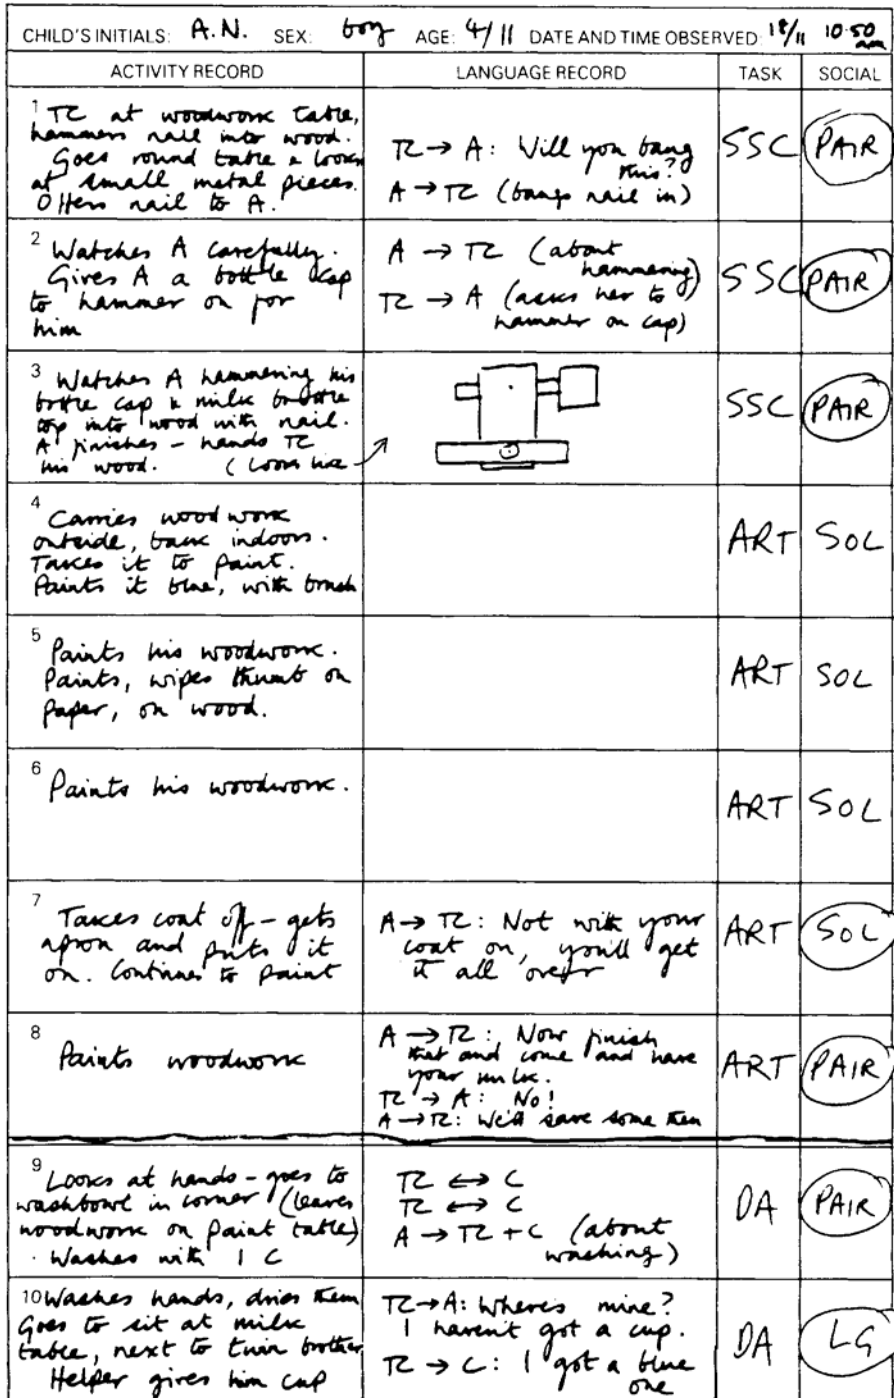 CHILD'S INITIALS: A.N. SEX: boy AGE: 4/11 DATE AND TIME OBSERVED: 18/11 10.50 am
ACTIVITY RECORD LANGUAGE RECORD TASK SOCIAL
1 TC at woodwork table,
hammers nail into wood.
Goes round table & looks
at small metal pieces.
Offers nail to A.
TC → A: Will you bang
this?
A → TC (bangs nail in)
SSC PAIR
2 Watches A carefully.
Gives A a bottle cap
to hammer on for
him
A → TC (about
hammering)
TC → A (asks her to
hammer on cap)
SSC PAIR
3 Watches A hammering his
bottle cap & milk bottle
top into wood with nail.
A finishes – hands TC
his wood. (Looks like
SSC PAIR
4 Carries woodwork
outside, back indoors.
Takes it to paint.
Paints it blue, with brush
ART SOL
5 Paints his woodwork.
Paints, wipes thumb on
paper, on wood.
ART SOL
6 Paints his woodwork.
ART SOL
7 Takes coat off – gets
apron and puts it
on. Continues to paint
A → TC: Not with your
coat on, you'll get
it all over
ART SOL
8 Paints woodwork
A → TC: Now finish
that and come and have
your milk.
TC → A: No!
A → TC: We'll save some then
ART PAIR
9 Looks at hands – goes to
washbowl in corner (leaves
woodwork on paint table)
. Washes with 1 C
TC ↔ C
TC ↔ C
A → TC + C (about
washing)
DA PAIR
10 Washes hands, dries them
Goes to sit at milk
table, next to twin brother
Helper gives him cup
TC → A: Where's mine?
I haven't got a cup.
TC → C: I got a blue
one
DA LG